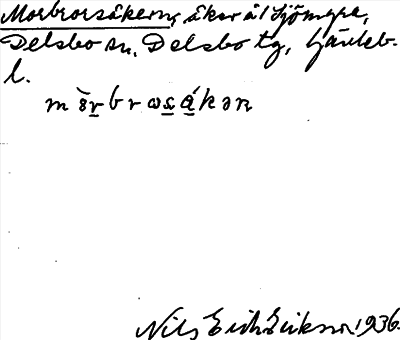 Morbrorsåkern, åker åt Sjömyra,
Delsbo sn, Delsbo tg, Gävleb.
l.
mòrbrosákən
Nils Erik Eriksson 1936.